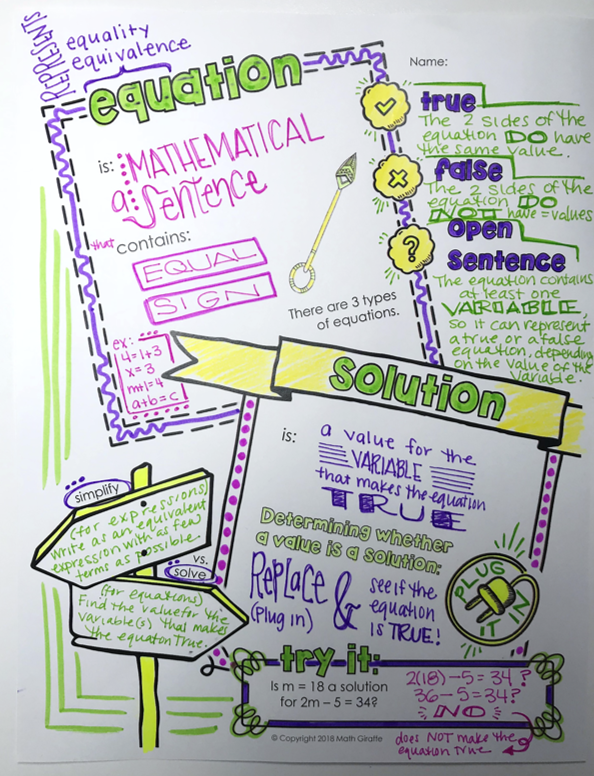 REPRESENTS
equality
equivalence
equation
is:
MATHEMATICAL
a Sentence
that contains:
EQUAL
SIGN
ex:
4=1+3
x=3
m+1=4
a+b=c
There are 3 types
of equations.
Name:
true
The 2 sides of the
equation DO have
the same value.
false
The 2 sides of the
equation DO
NOT have = values
?
open
sentence
The equation contains
at least one
VARIABLE,
so it can represent
a true or a false
equation, depending
on the value of the
variable.
solution
is:
a value for the
VARIABLE
that makes the equation
TRUE
Determining whether
a value is a solution:
REPLACE
(Plug in)
&
see if the
equation
is TRUE!
PLUG
IT IN
simplify
(for expressions)
write as an equivalent
expression with as few
terms as possible.
vs.
solve
(for equations)
Find the value for the
variable(s) that makes
the equaton True.
try it:
Is m = 18 a solution
for 2m – 5 = 34?
2(18)-5=34?
36-5=34?
NO
does NOT make the
equation true
© Copyright 2018 Math Giraffe